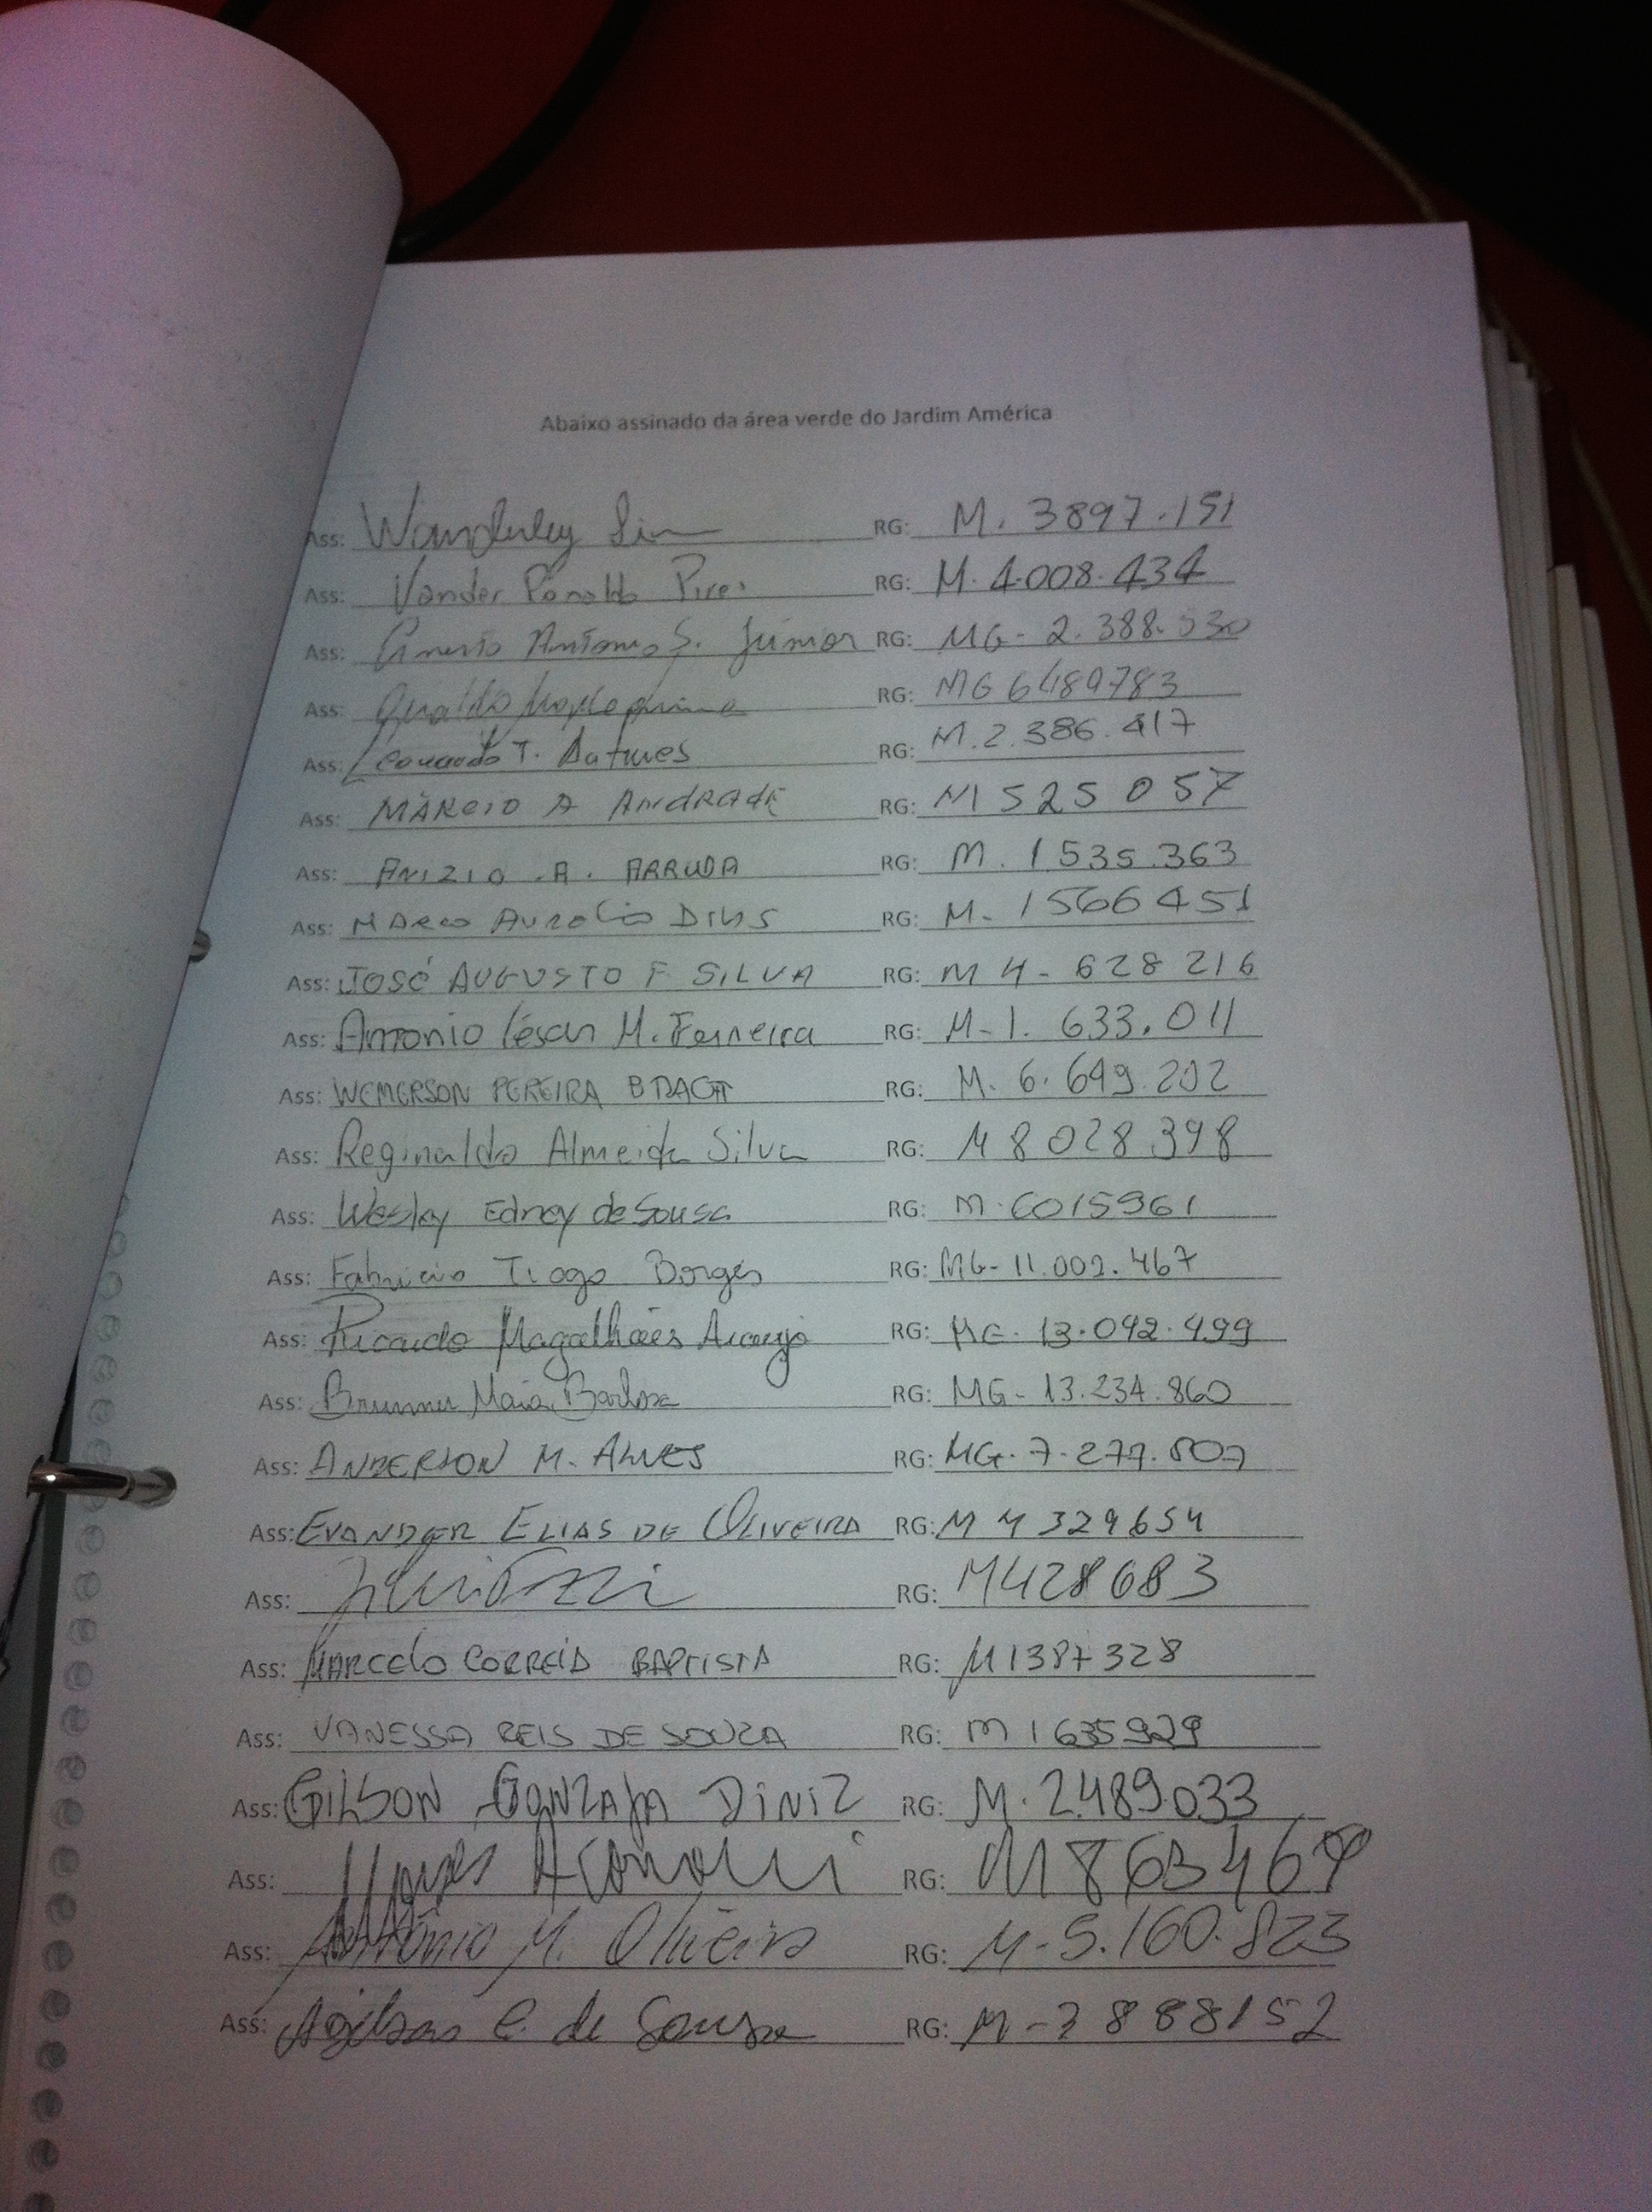 Abaixo assinado da área verde do Jardim América
Ass: Wanderley RG: M. 3897.151
Ass: Vander Ronaldo Pires RG: M. 4.008.434
Ass: Ernesto Antonio S. Júnior RG: MG- 2.388.530
Ass: RG: MG 6489783
Ass: Leonardo T. Antunes RG: M.2.386.417
Ass: MÁRCIO A ANDRADE RG: M 525 057
Ass: ANIZIO A. ARRUDA RG: M. 1535.363
Ass: MARCO AURELIO DIAS RG: M- 1566451
Ass: JOSÉ AUGUSTO F SILVA RG: M 4- 628 216
Ass: Antonio César M. Ferreira RG: M-1. 633.011
Ass: WEMERSON PEREIRA RG: M. 6. 649.202
Ass: Reginaldo Almeida Silva RG: M 8 028 398
Ass: Wesley Edney de Sousa RG: M.6015961
Ass: Fabricio Tiago Borges RG: MG-11.002.467
Ass: Ricardo Magalhães Araujo RG: MG-13.092.499
Ass: Brunner Maia Barbosa RG: MG-13.234.860
Ass: ANDERSON M. ALVES RG: MG-7-277.807
Ass: EVANDER ELIAS DE OLIVEIRA RG: M 4 329654
Ass: RG: M428683
Ass: MARCELO CORREIA BAPTISTA RG: M1387328
Ass: VANESSA REIS DE SOUZA RG: M 1635929
Ass: GILSON GONZAGA DINIZ RG: M. 2.489.033
Ass: RG:
Ass: Antônio M. Oliveira RG: M-5.160.823
Ass: C. de Sousa RG: M-3888152